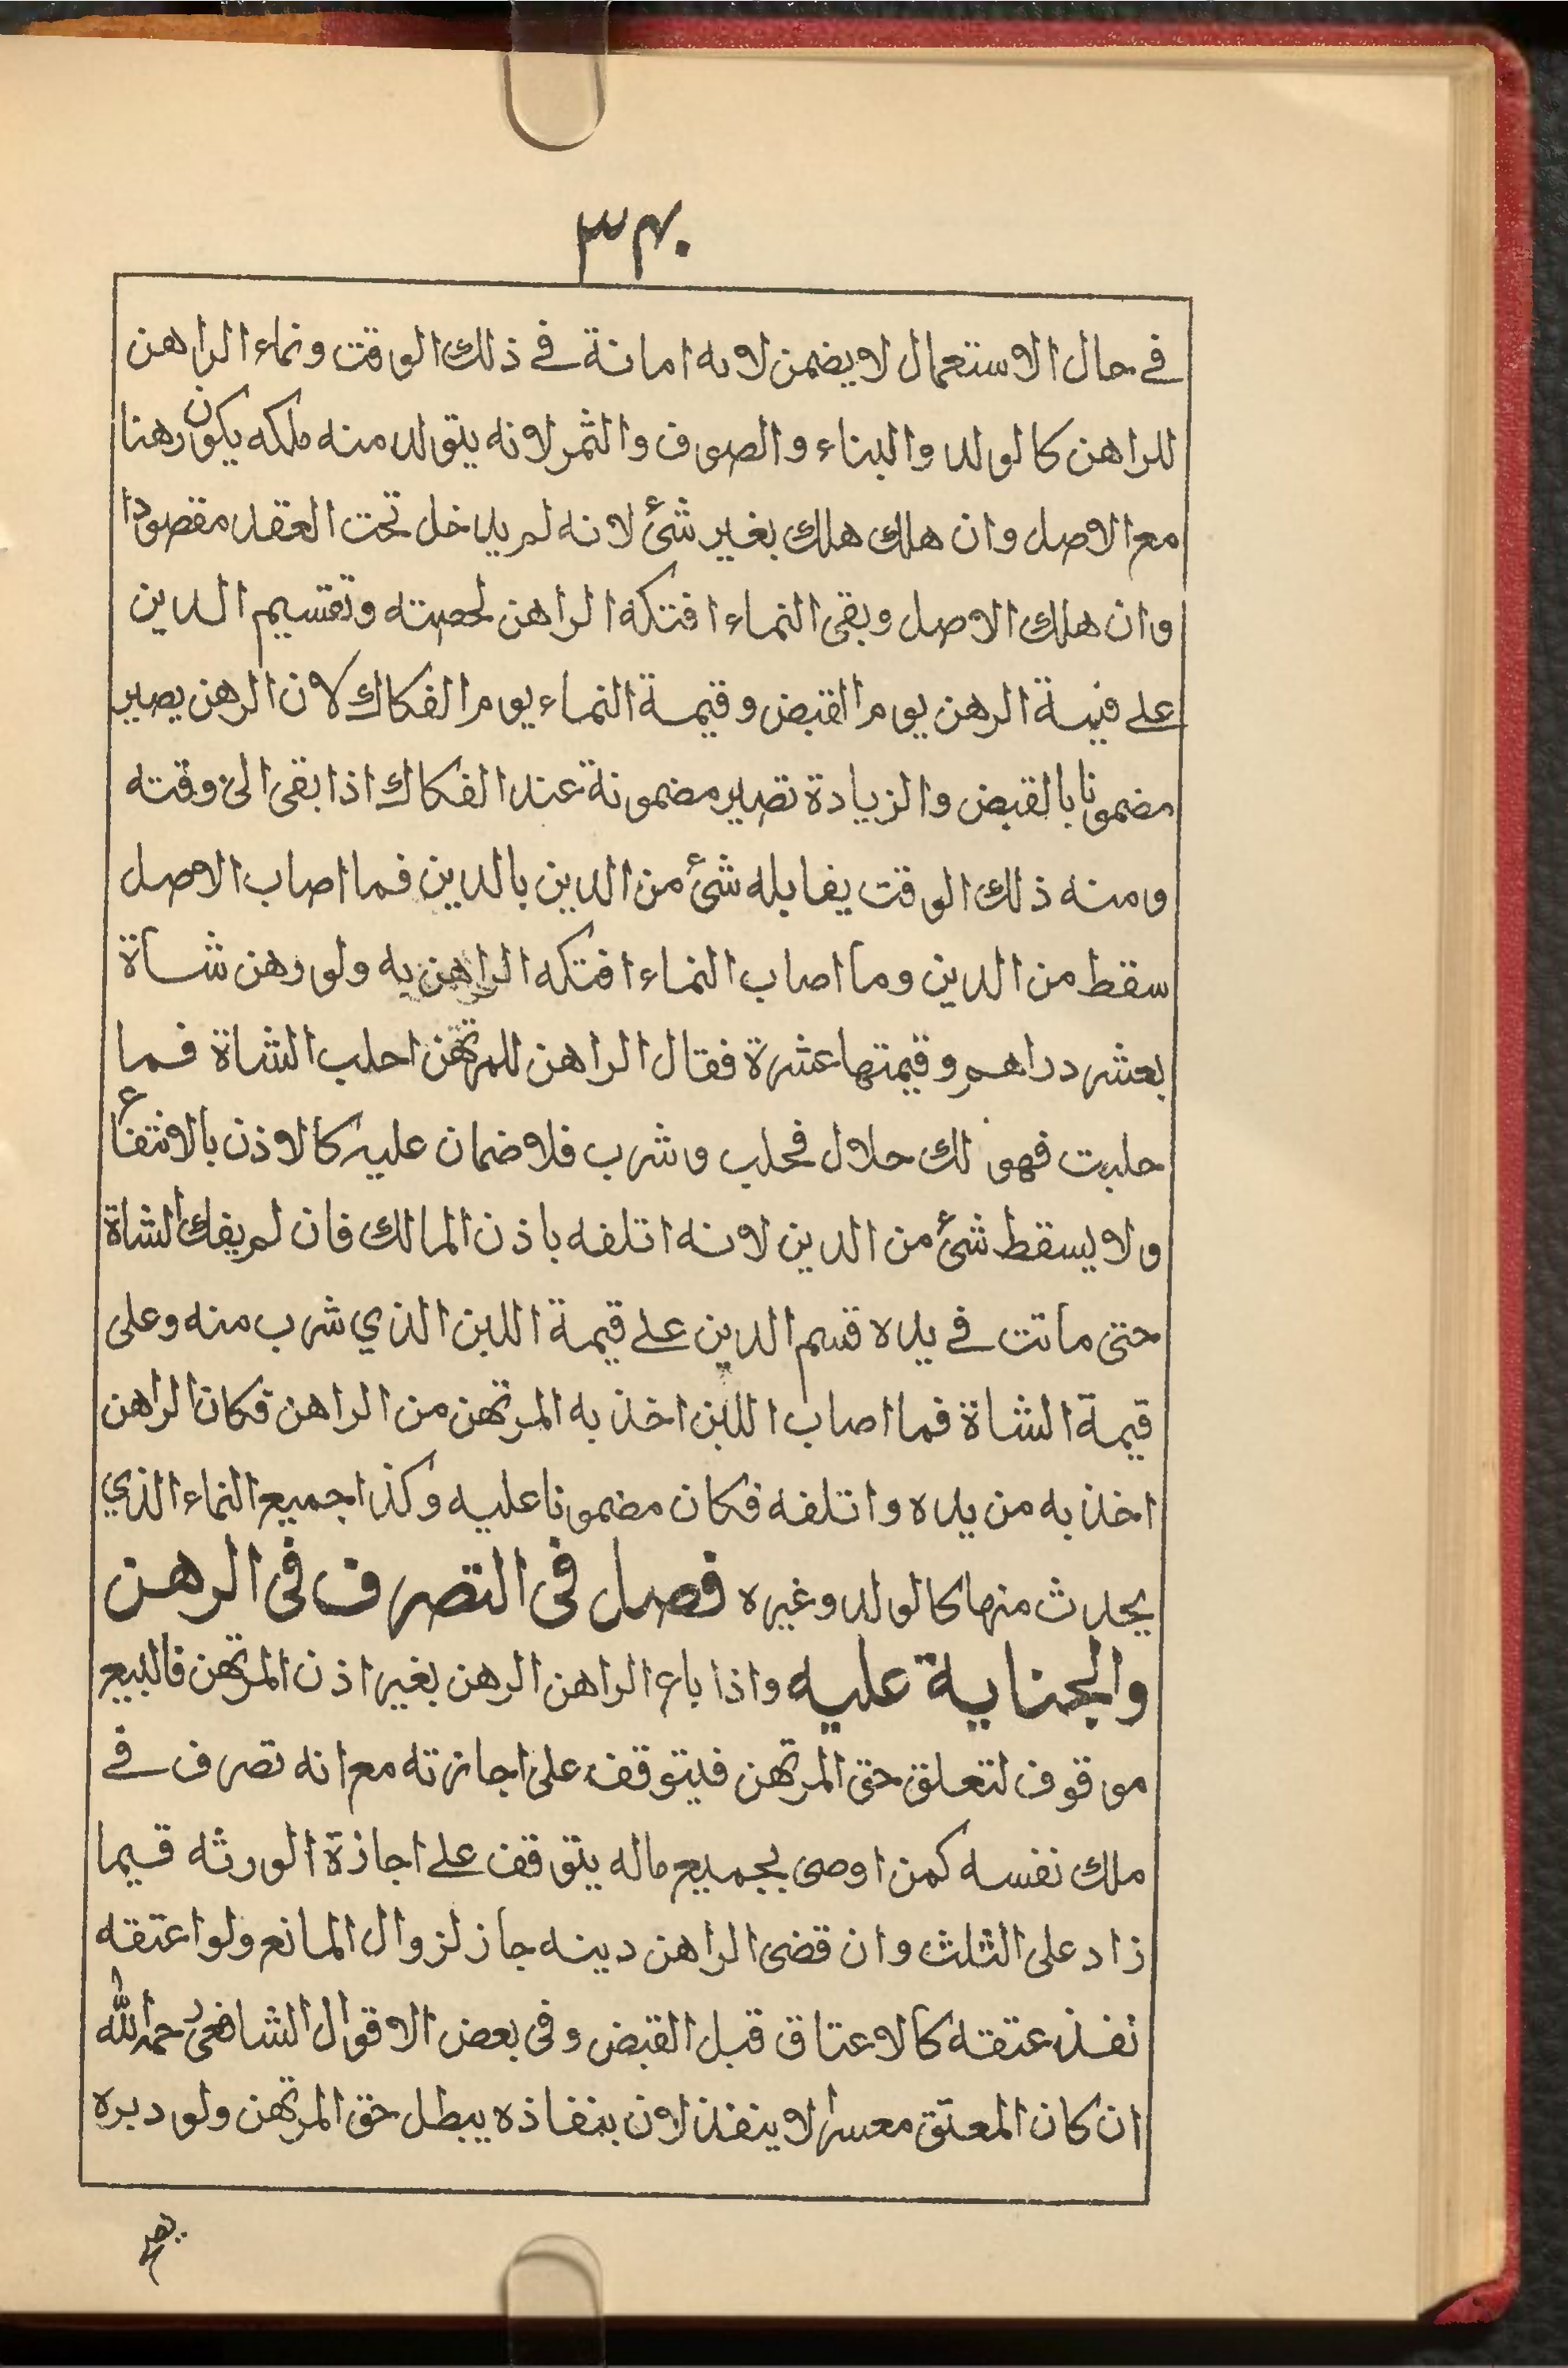 ٣٤٠
في حال الاستعمال لا يضمن لانه امانة في ذلك الوقت ونماء الراهن
للراهن كالولد والبناء والصوف والثمر لانه يتولد منه ملكه يكون رهنا
مع الاصل وان هلك هلك بغير شئ لانه لم يدخل تحت العقد مقصودا
وان هلك الاصل وبقى النماء افتكه الراهن لحصته وتقسيم الدين
على قيمة الرهن يوم القبض وقيمة النماء يوم الفكاك لان الرهن يصير
مضمونا بالقبض والزيادة تصير مضمونة عند الفكاك اذا بقى الى وقته
ومنه ذلك الوقت يقابله شئ من الدين بالدين فما اصاب الاصل
سقط من الدين وما اصاب النماء افتكه الراهن به ولو رهن شاة
بعشر دراهم وقيمتها عشرة فقال الراهن للمرتهن احلب الشاة فما
حلبت فهو لك حلال فحلب وشرب فلا ضمان عليه كالاذن بالانتفاع
ولا يسقط شئ من الدين لانه اتلفه باذن المالك فان لم يفك الشاة
حتى ماتت في يده قسم الدين على قيمة اللبن الذي شرب منه وعلى
قيمة الشاة فما اصاب اللبن اخذ به المرتهن من الراهن فكان الراهن
اخذ به من يده واتلفه فكان مضمونا عليه وكذا جميع النماء الذي
يحدث منها كالولد وغيره فصل فى التصرف فى الرهن
والجناية عليه واذا باع الراهن الرهن بغير اذن المرتهن فالبيع
موقوف لتعلق حق المرتهن فيتوقف على اجازته مع انه تصرف في
ملك نفسه كمن اوصى بجميع ماله يتوقف على اجازة الورثه قيما
زاد على الثلث وان قضى الراهن دينه جاز لزوال المانع ولو اعتقه
نفذ عتقه كالاعتاق قبل القبض وفى بعض الاقوال الشافعى رحمه الله
ان كان المعتق معسرا لا ينفذ لان بنفاذه يبطل حق المرتهن ولو دبره